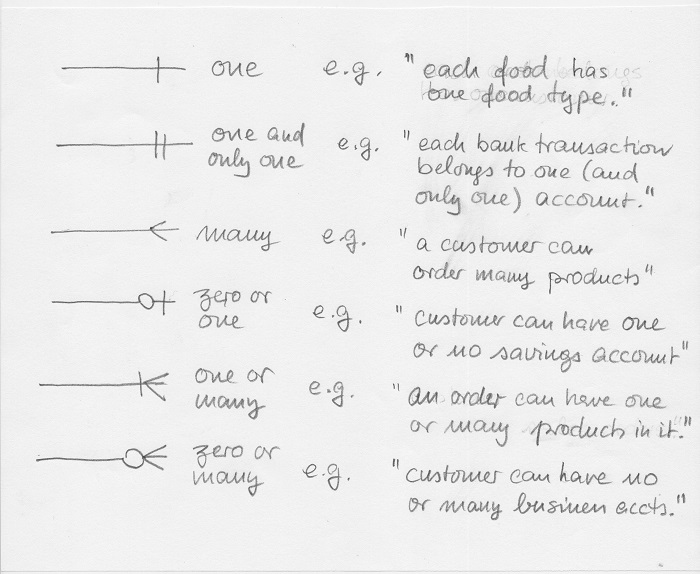 one e.g. "each food has
one food type."
one and e.g. "each bank transaction
only one belongs to one (and
only one) account."
many e.g. "a customer can
order many products"
zero or e.g. "customer can have one
one or no savings account"
one or e.g. "an order can have one
many or many product in it."
zero or e.g. "customer can have no
many or many business accts."